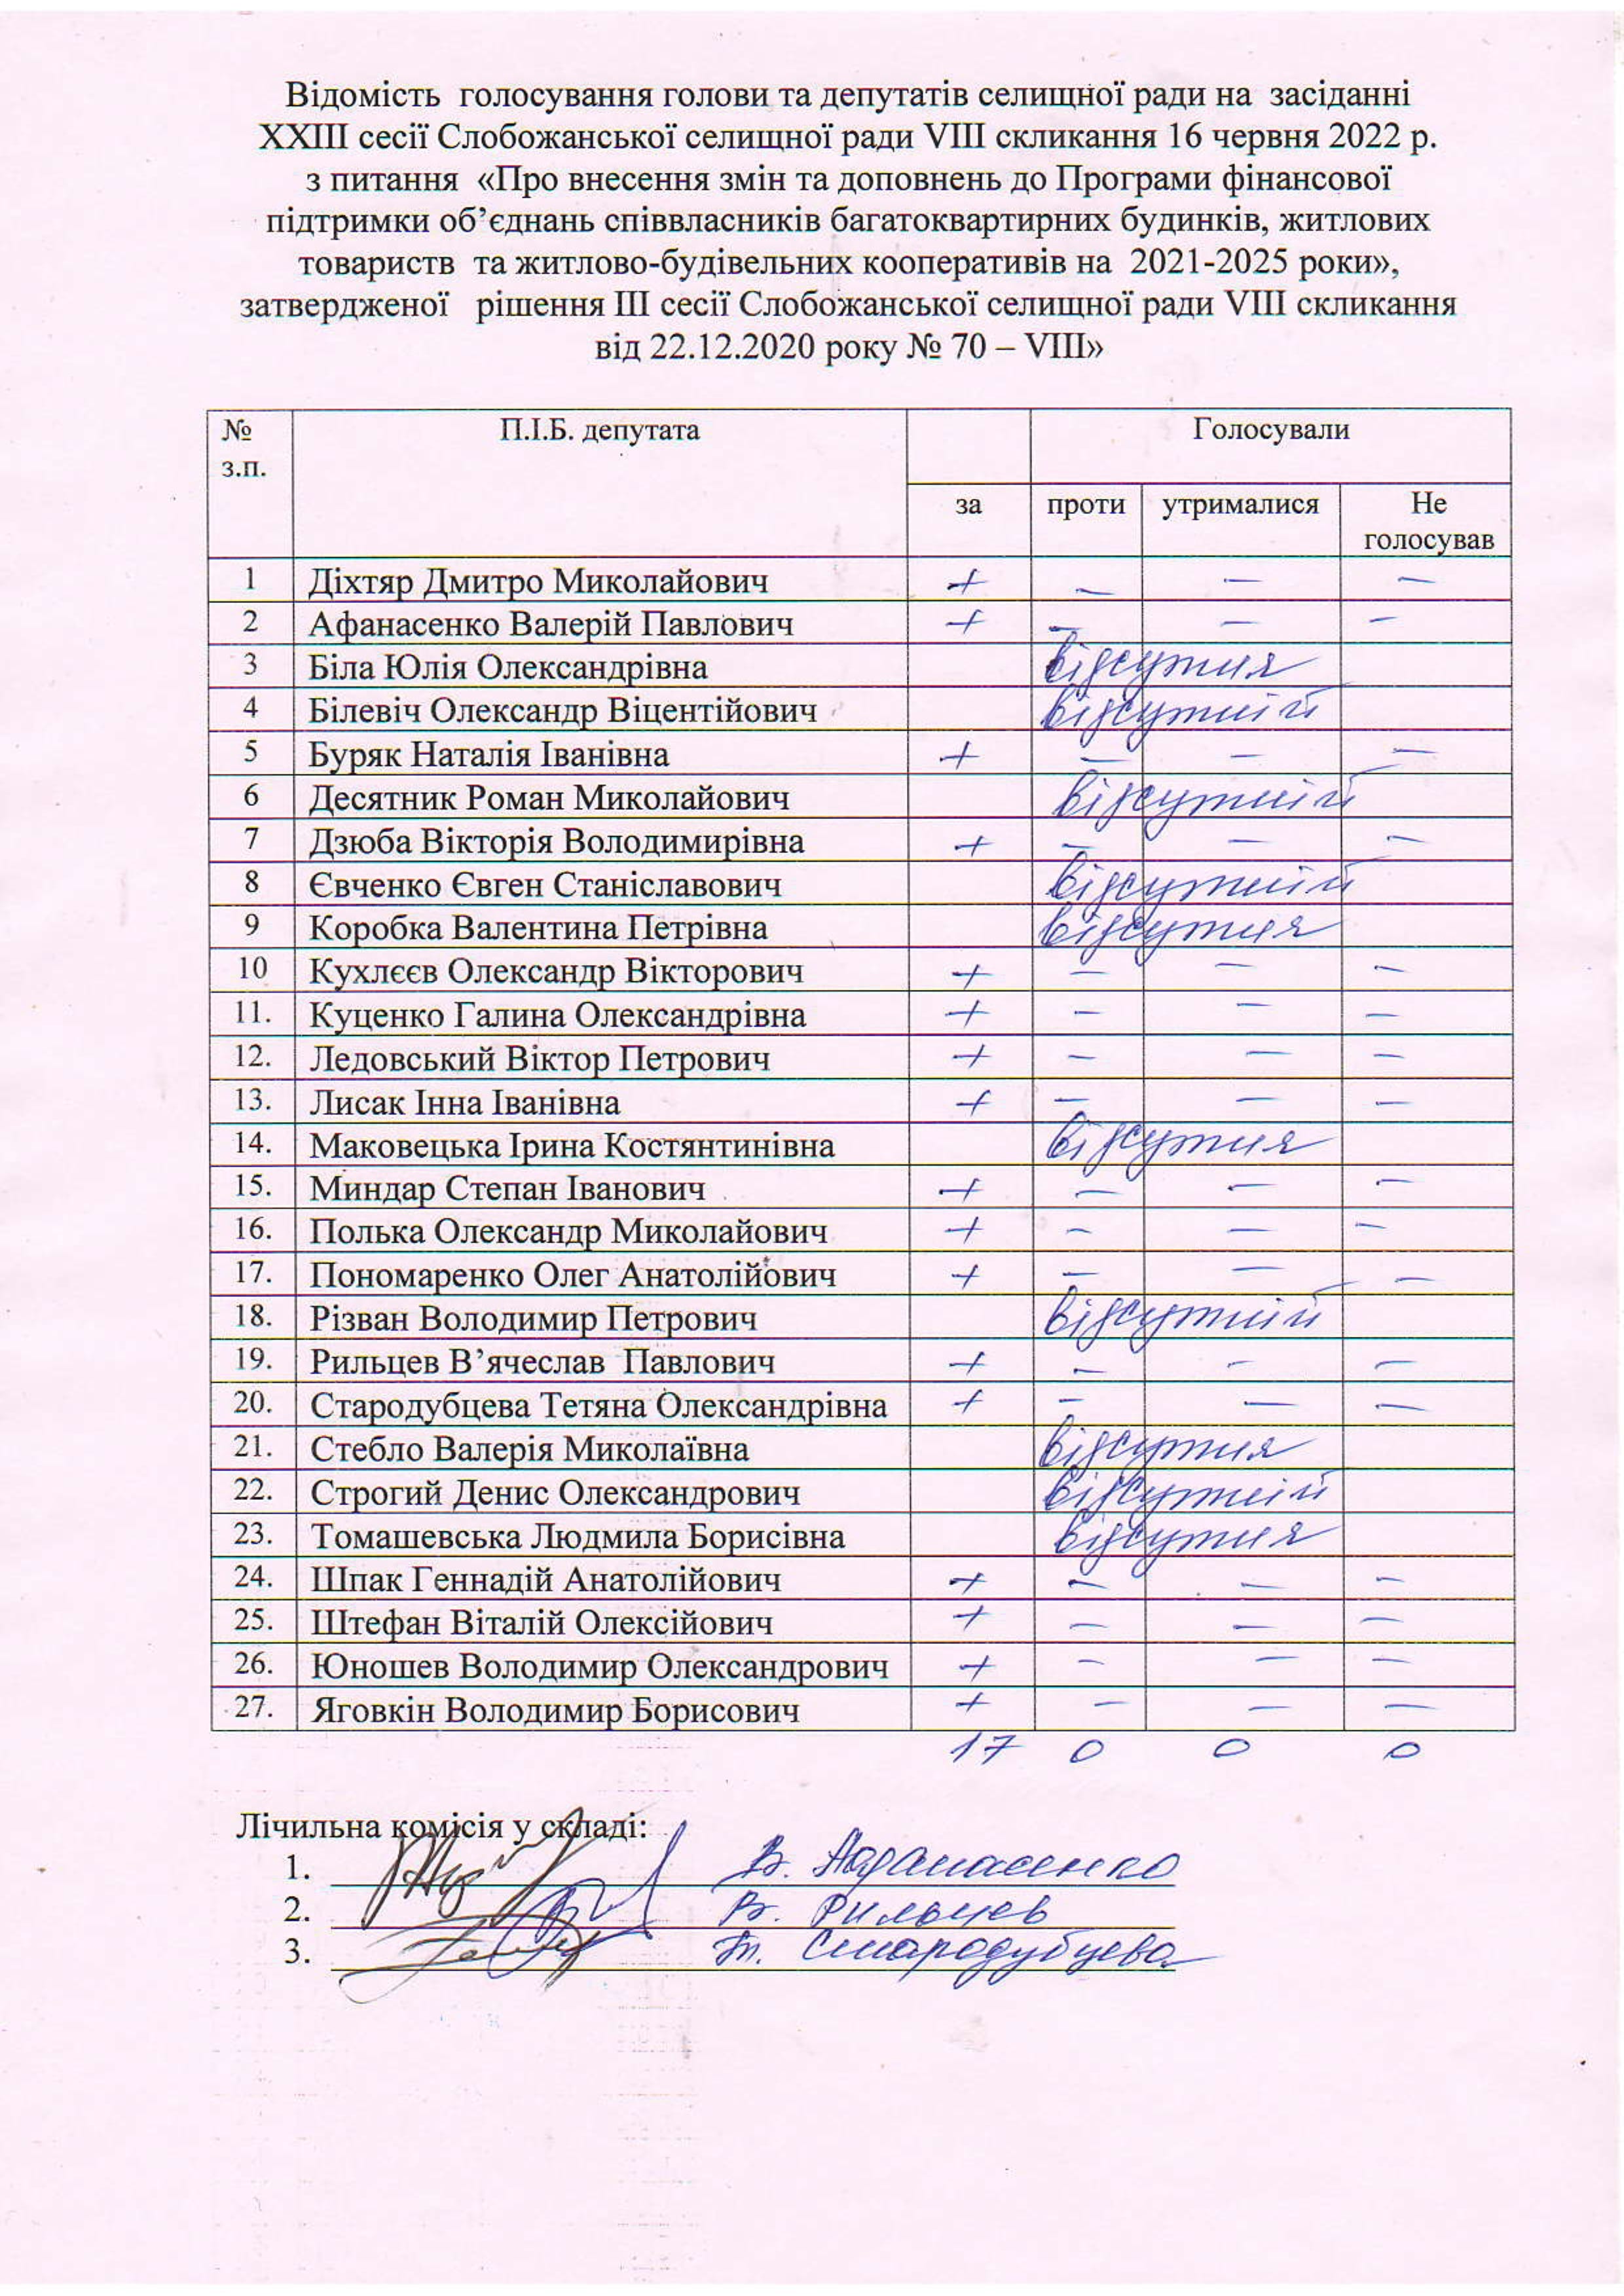 Відомість голосування голови та депутатів селищної ради на засіданні
XXIII сесії Слобожанської селищної ради VIII скликання 16 червня 2022 р.
з питання «Про внесення змін та доповнень до Програми фінансової
підтримки об’єднань співвласників багатоквартирних будинків, житлових
товариств та житлово-будівельних кооперативів на 2021-2025 роки»,
затвердженої рішення III сесії Слобожанської селищної ради VIII скликання
від 22.12.2020 року № 70 – VIII»
№ з.п. П.І.Б. депутата Голосували
за проти утрималися Не голосував
1 Діхтяр Дмитро Миколайович + – – –
2 Афанасенко Валерій Павлович + – – –
3 Біла Юлія Олександрівна відсутня
4 Білевіч Олександр Віцентійович відсутній
5 Буряк Наталія Іванівна + – – –
6 Десятник Роман Миколайович відсутній
7 Дзюба Вікторія Володимирівна + – – –
8 Євченко Євген Станіславович відсутній
9 Коробка Валентина Петрівна відсутня
10 Кухлєєв Олександр Вікторович + – – –
11. Куценко Галина Олександрівна + – – –
12. Ледовський Віктор Петрович + – – –
13. Лисак Інна Іванівна + – – –
14. Маковецька Ірина Костянтинівна відсутня
15. Миндар Степан Іванович + – – –
16. Полька Олександр Миколайович + – – –
17. Пономаренко Олег Анатолійович + – – –
18. Різван Володимир Петрович відсутній
19. Рильцев В’ячеслав Павлович + – – –
20. Стародубцева Тетяна Олександрівна + – – –
21. Стебло Валерія Миколаївна відсутня
22. Строгий Денис Олександрович відсутній
23. Томашевська Людмила Борисівна відсутня
24. Шпак Геннадій Анатолійович + – – –
25. Штефан Віталій Олексійович + – – –
26. Юношев Володимир Олександрович + – – –
27. Яговкін Володимир Борисович + – – –
17 0 0 0
Лічильна комісія у складі:
1. В. Афанасенко
2. В. Рильцев
3. Т. Стародубцева